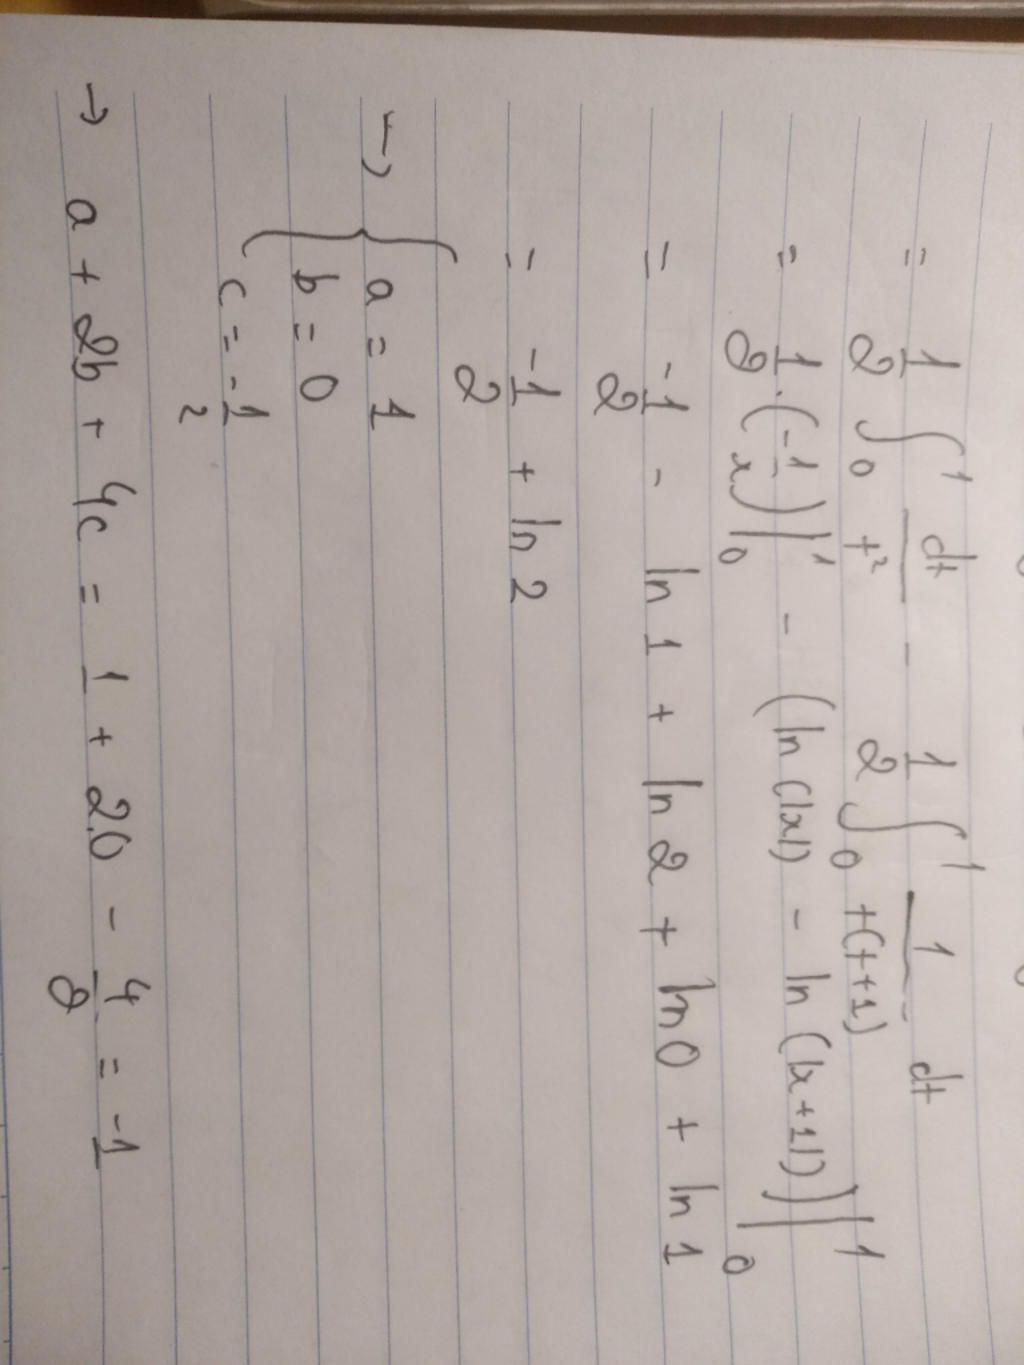 = 1/2 ∫₀¹ dt/t² - 1/2 ∫₀¹ 1/t(t+1) dt
= 1/2 . (-1/x) |₀¹ - (ln(|x|) - ln(|x+1|)) |₀¹
= -1/2 - ln 1 + ln 2 + ln 0 + ln 1
= -1/2 + ln 2
→ { a = 1
b = 0
c = -1/2
→ a + 2b + 4c = 1 + 2.0 - 4/2 = -1